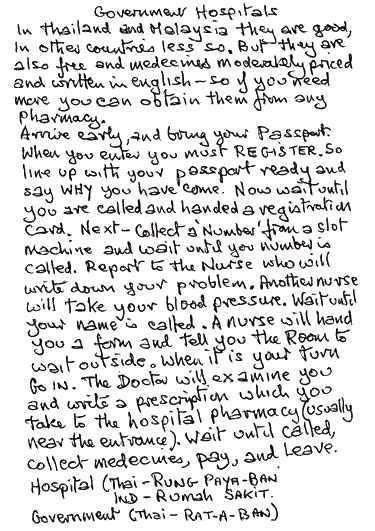 Government Hospitals
In Thailand and Malaysia they are good,
In other countries less so. But they are
also free and medecines moderately priced
and written in english - so if you need
more you can obtain them from any
pharmacy.
Arrive early, and bring your Passport.
When you enter you must REGISTER. So
line up with your passport ready and
say WHY you have come. Now wait until
you are called and handed a registration
Card. Next - Collect a 'Number' from a slot
machine and wait until you number is
called. Report to the Nurse who will
write down your problem. Another nurse
will take your blood pressure. Wait until
your name is called. A nurse will hand
you a form and tell you the Room to
wait outside. When it is your turn
Go IN. The Doctor will examine you
and write a prescription which you
take to the hospital pharmacy (usually
near the entrance). Wait until called,
collect medecines, pay, and leave.
Hospital (Thai - RUNG PAYA-BAN
IND - RUMAH SAKIT.
Government (Thai - RAT-A-BAN)